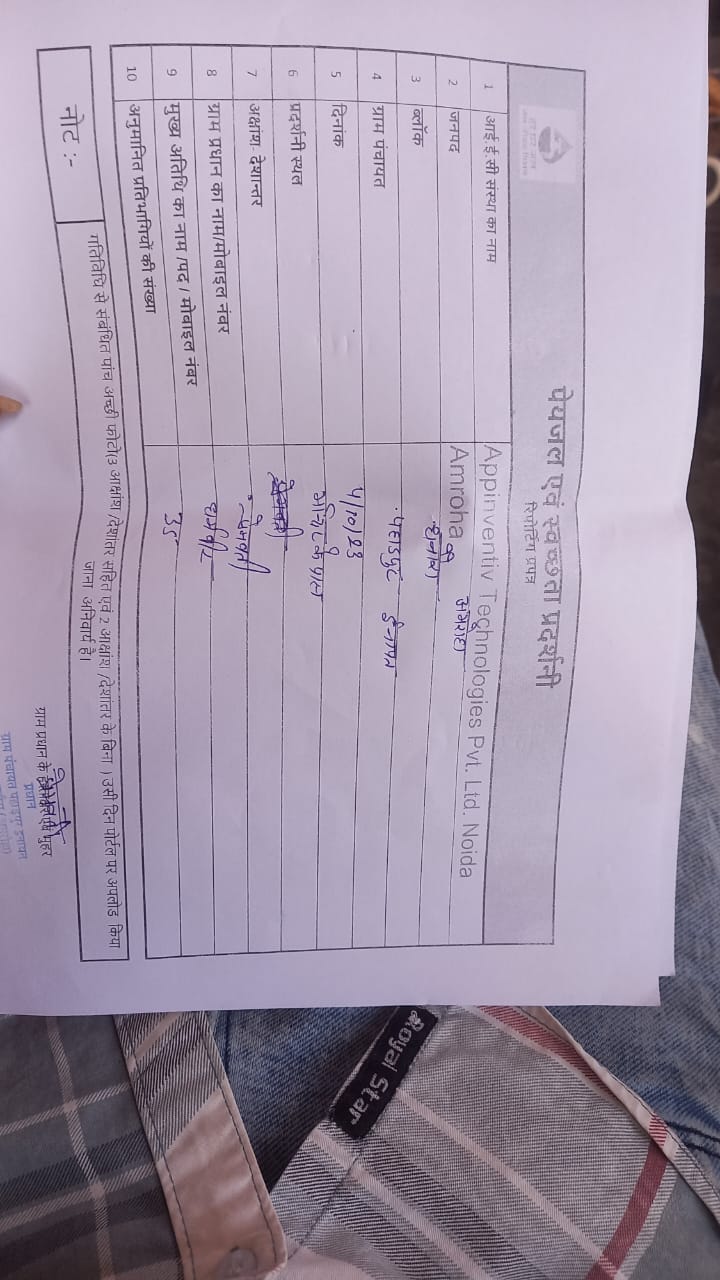 पेयजल एवं स्वच्छता प्रदर्शनी
रिपोर्टिंग प्रपत्र
1 आई.ई.सी संस्था का नाम Appinventiv Technologies Pvt. Ltd. Noida
2 जनपद Amroha अमरोहा
3 ब्लॉक
4 ग्राम पंचायत पहाडपुर इनायत
5 दिनांक 4/10/23
6 प्रदर्शनी स्थल मन्दिर के पास
7 अक्षांश- देशान्तर
8 ग्राम प्रधान का नाम/मोबाइल नंबर प्रेमवती
9 मुख्य अतिथि का नाम /पद / मोबाइल नंबर धर्मवीर
10 अनुमानित प्रतिभागियों की संख्या 35
नोट :-
गतिविधि से संबंधित पांच अच्छी फोटोउ आक्षांश /देशांतर सहित एवं 2 आक्षांश /देशांतर के बिना । उसी दिन पोर्टल पर अपलोड किया
जाना अनिवार्य है।
ग्राम प्रधान के मुहर
प्रधान
ग्राम पंचायत पहाडपुर इनायत
Royal Star